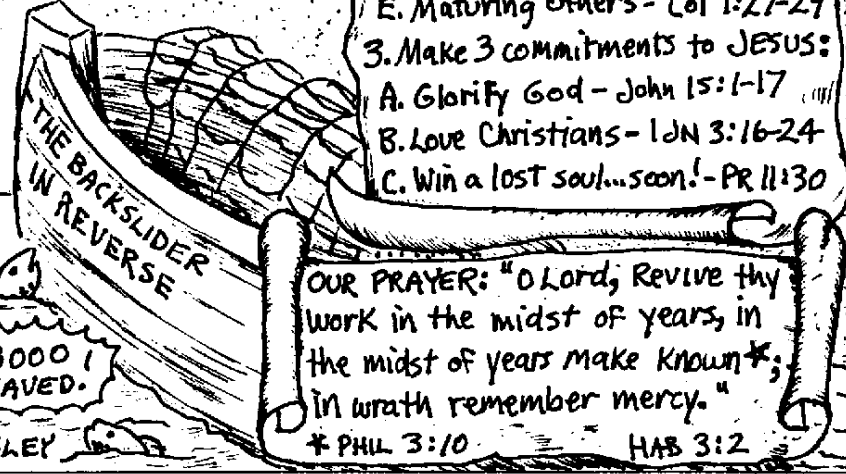 E. Maturing others - Col 1:27-29
3. Make 3 commitments to JESUS:
A. Glorify God - John 15:1-17
B. Love Christians - 1 JN 3:16-24
C. Win a lost soul...soon! - PR 11:30
THE BACKSLIDER
IN REVERSE
OUR PRAYER: "O Lord, Revive thy
work in the midst of years, in
the midst of years make known*;
in wrath remember mercy."
* PHIL 3:10 HAB 3:2
3000!
SAVED.
LEY